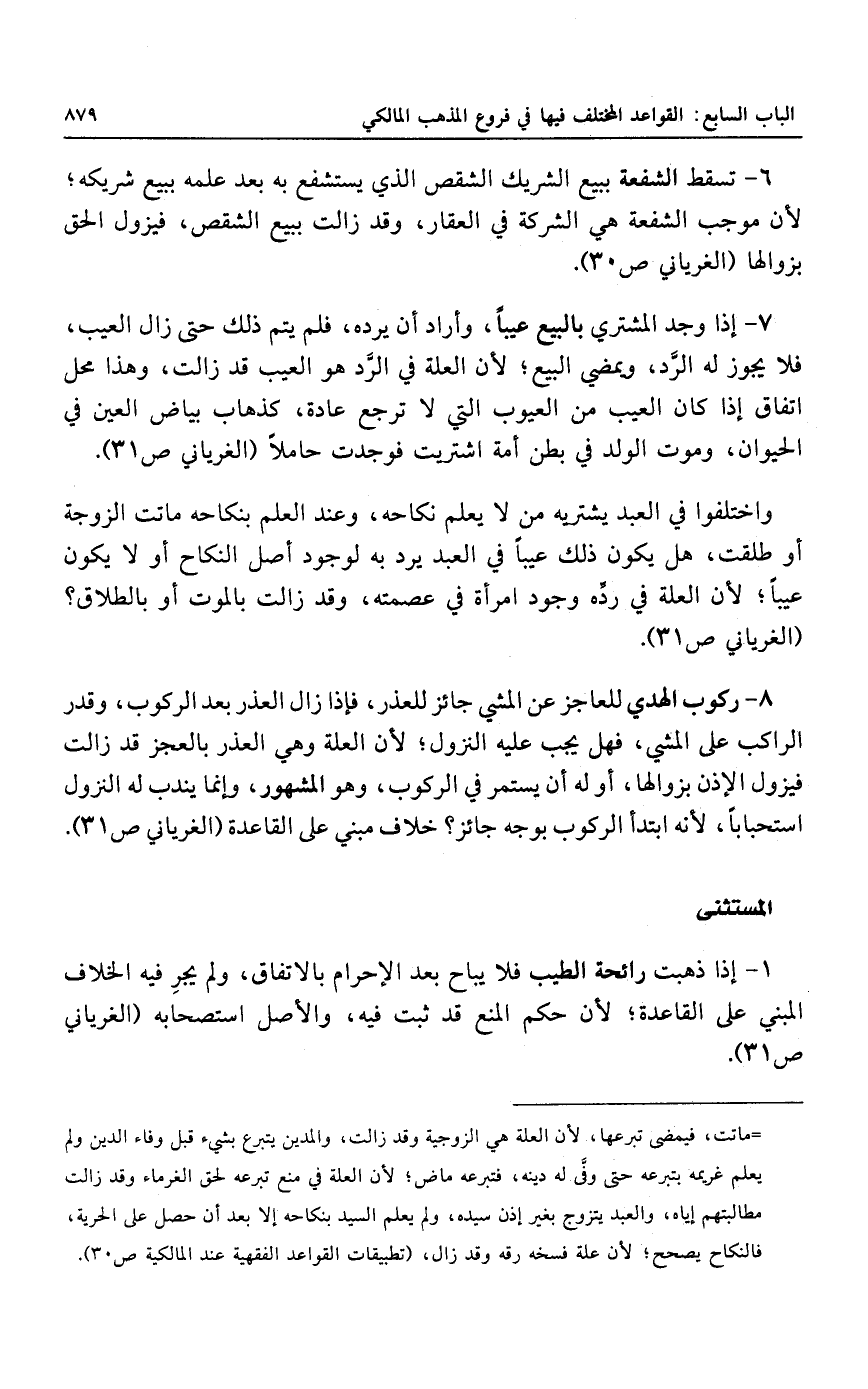 الباب السابع: القواعد المختلف فيها في فروع المذهب المالكي ٨٧٩
٦- تسقط الشفعة ببيع الشريك الشقص الذي يستشفع به بعد علمه ببيع شريكه؛
لأن موجب الشفعة هي الشركة في العقار، وقد زالت ببيع الشقص، فيزول الحق
بزوالها (الغرياني ص٣٠).
٧- إذا وجد المشتري بالبيع عيباً، وأراد أن يرده، فلم يتم ذلك حتى زال العيب،
فلا يجوز له الرَّد، ويمضي البيع؛ لأن العلة في الرَّد هو العيب قد زالت، وهذا محل
اتفاق إذا كان العيب من العيوب التي لا ترجع عادة، كذهاب بياض العين في
الحيوان، وموت الولد في بطن أمة اشتريت فوجدت حاملاً (الغرياني ص٣١).
واختلفوا في العبد يشتريه من لا يعلم نكاحه، وعند العلم بنكاحه ماتت الزوجة
أو طلقت، هل يكون ذلك عيباً في العبد يرد به لوجود أصل النكاح أو لا يكون
عيباً؛ لأن العلة في ردَّه وجود امرأة في عصمته، وقد زالت بالموت أو بالطلاق؟
(الغرياني ص٣١).
٨- ركوب الهدي للعاجز عن المشي جائز للعذر، فإذا زال العذر بعد الركوب، وقدر
الراكب على المشي، فهل يجب عليه النزول؛ لأن العلة وهي العذر بالعجز قد زالت
فيزول الإذن بزوالها، أو له أن يستمر في الركوب، وهو المشهور، وإنما يندب له النزول
استحباباً، لأنه ابتدأ الركوب بوجه جائز؟ خلاف مبني على القاعدة (الغرياني ص٣١).
المستثنى
١- إذا ذهبت رائحة الطيب فلا يباح بعد الإحرام بالاتفاق، ولم يجرِ فيه الخلاف
المبني على القاعدة؛ لأن حكم المنع قد ثبت فيه، والأصل استصحابه (الغرياني
ص٣١).
=ماتت، فيمضى تبرعها، لأن العلة هي الزوجية وقد زالت، والمدين يتبرع بشيء قبل وفاء الدين ولم
يعلم غريمه بتبرعه حتى وفَّى له دينه، فتبرعه ماض؛ لأن العلة في منع تبرعه لحق الغرماء وقد زالت
مطالبتهم إياه، والعبد يتزوج بغير إذن سيده، ولم يعلم السيد بنكاحه إلا بعد أن حصل على الحرية،
فالنكاح يصحح؛ لأن علة فسخه رقه وقد زال، (تطبيقات القواعد الفقهية عند المالكية ص٣٠).